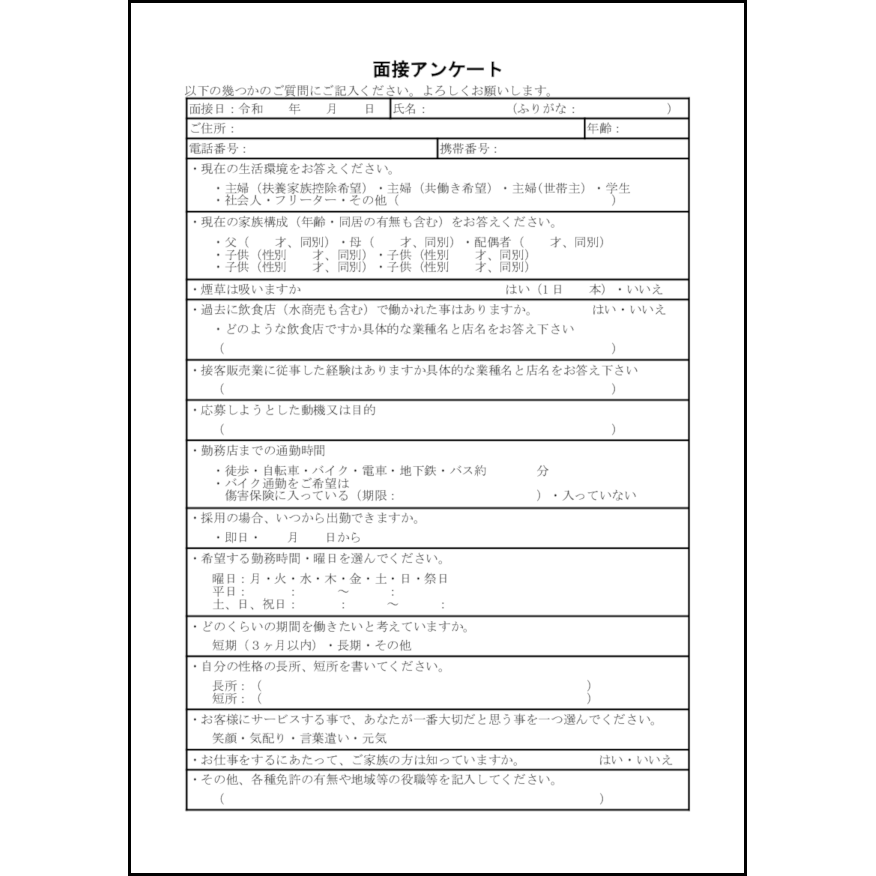 面接アンケート
以下の幾つかのご質問にご記入ください。よろしくお願いします。
面接日：令和　　年　　月　　日　氏名：　　　　　　　（ふりがな：　　　　　　　）
ご住所：　　　　　　　　　　　　　　　　　　　　　　　　　　　　年齢：
電話番号：　　　　　　　　　　　　　　　携帯番号：
・現在の生活環境をお答えください。
・主婦（扶養家族控除希望）・主婦（共働き希望）・主婦(世帯主）・学生
・社会人・フリーター・その他（　　　　　　　　　　　　　　　　　）
・現在の家族構成（年齢・同居の有無も含む）をお答えください。
・父（　　才、同別）・母（　　才、同別）・配偶者（　　才、同別）
・子供（性別　　才、同別）・子供（性別　　才、同別）
・子供（性別　　才、同別）・子供（性別　　才、同別）
・煙草は吸いますか　　　　　　　　　　　　　　　　はい（1日　　本）・いいえ
・過去に飲食店（水商売も含む）で働かれた事はありますか。　　　　はい・いいえ
・どのような飲食店ですか具体的な業種名と店名をお答え下さい
（　　　　　　　　　　　　　　　　　　　　　　　　　　　　　　　）
・接客販売業に従事した経験はありますか具体的な業種名と店名をお答え下さい
（　　　　　　　　　　　　　　　　　　　　　　　　　　　　　　　）
・応募しようとした動機又は目的
（　　　　　　　　　　　　　　　　　　　　　　　　　　　　　　　）
・勤務店までの通勤時間
・徒歩・自転車・バイク・電車・地下鉄・バス約　　　　分
・バイク通勤をご希望は
傷害保険に入っている（期限：　　　　　　　　　　　）・入っていない
・採用の場合、いつから出勤できますか。
・即日・　　月　　日から
・希望する勤務時間・曜日を選んでください。
曜日：月・火・水・木・金・土・日・祭日
平日：　　　：　　　～　　　：
土、日、祝日：　　　：　　　～　　　：
・どのくらいの期間を働きたいと考えていますか。
短期（３ヶ月以内）・長期・その他
・自分の性格の長所、短所を書いてください。
長所：（　　　　　　　　　　　　　　　　　　　　　　　　　　）
短所：（　　　　　　　　　　　　　　　　　　　　　　　　　　）
・お客様にサービスする事で、あなたが一番大切だと思う事を一つ選んでください。
笑顔・気配り・言葉遣い・元気
・お仕事をするにあたって、ご家族の方は知っていますか。　　　　　　はい・いいえ
・その他、各種免許の有無や地域等の役職等を記入してください。
（　　　　　　　　　　　　　　　　　　　　　　　　　　　　　　）